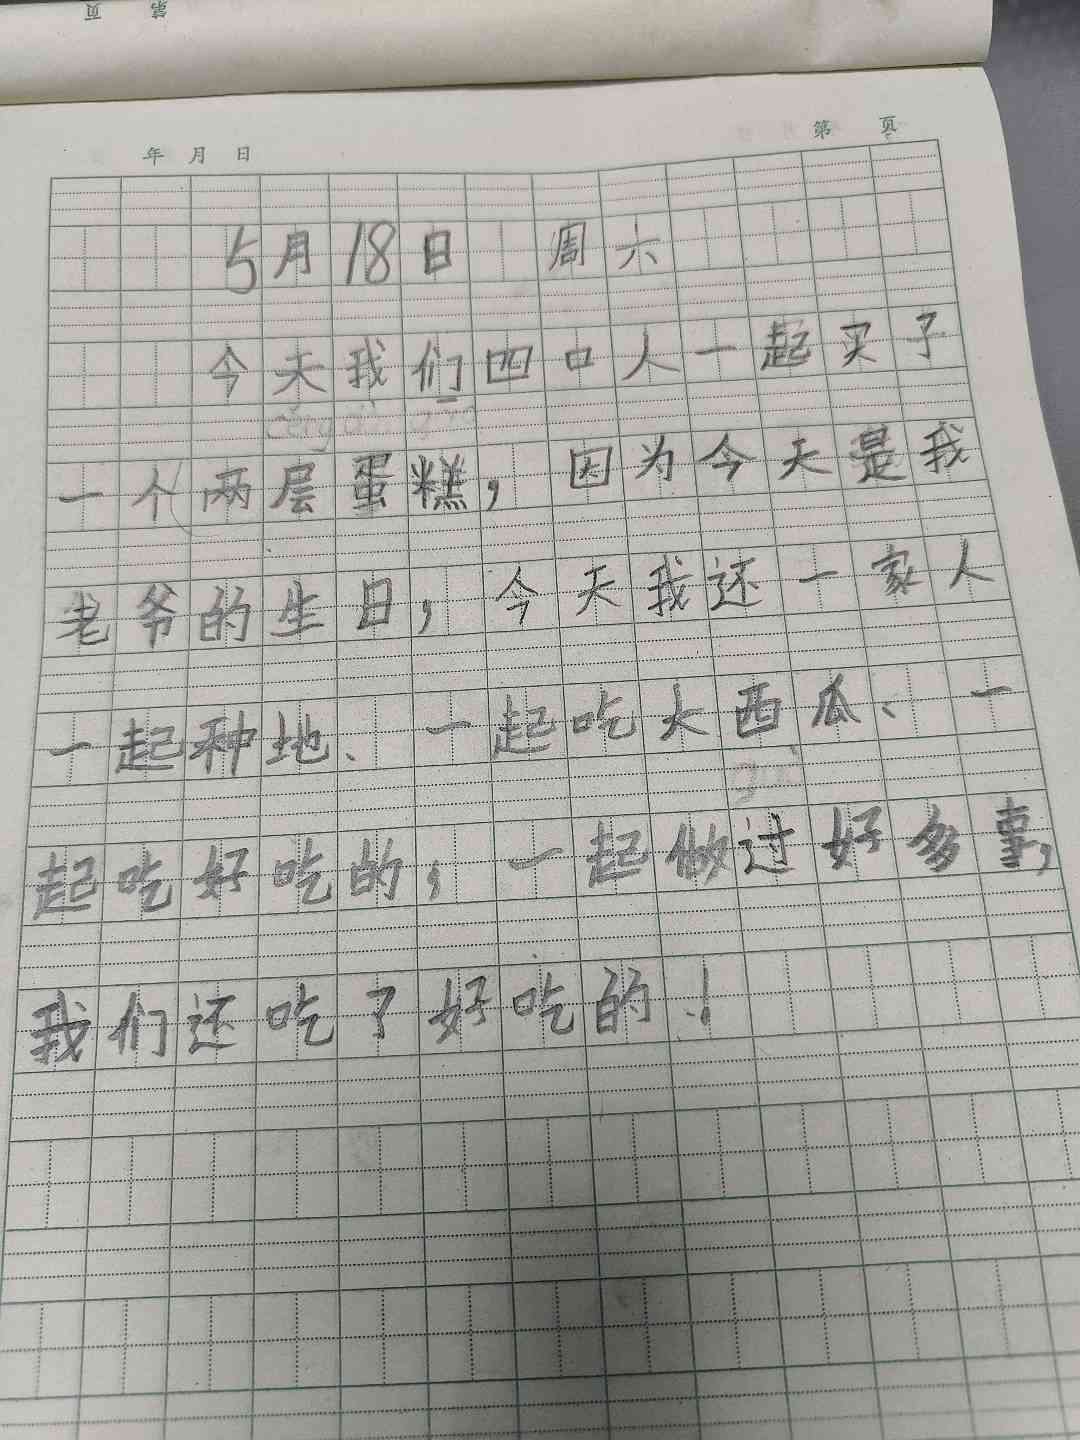 第 页
年 月 日 第 页
5月18日 周六
今天我们四口人一起买了
céng dàn gāo
一个两层蛋糕，因为今天是我
老爷的生日，今天我还一家人
一起种地、一起吃大西瓜、一
guò
起吃好吃的，一起做过好多事，
我们还吃了好吃的！